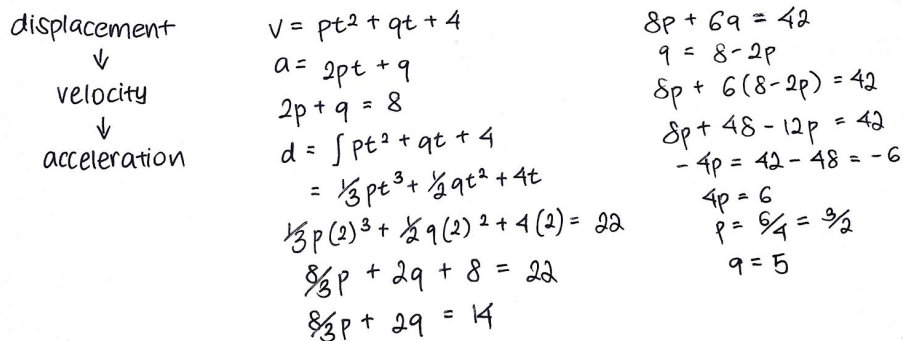 displacement
↓
velocity
↓
acceleration
v = pt² + qt + 4
a = 2pt + q
2p + q = 8
d = ∫ pt² + qt + 4
= ⅓pt³ + ½qt² + 4t
⅓p(2)³ + ½q(2)² + 4(2) = 22
8/3p + 2q + 8 = 22
8/3p + 2q = 14
8p + 6q = 42
q = 8 - 2p
8p + 6(8-2p) = 42
8p + 48 - 12p = 42
- 4p = 42 - 48 = -6
4p = 6
p = 6/4 = 3/2
q = 5